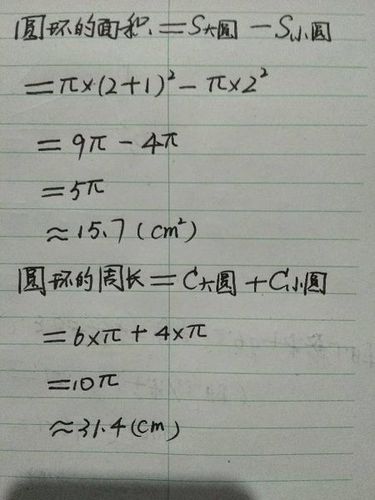 圆环的面积=S大圆-S小圆
=π×(2+1)²-π×2²
=9π-4π
=5π
≈15.7(cm²)
圆环的周长=C大圆+C小圆
=6×π+4×π
=10π
≈31.4(cm)